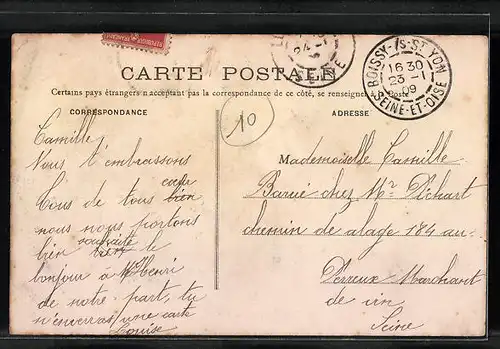 REPUBLIQUE FRANÇAISE
BOISSY-/S-ST YON
16 30
23 -1
09
SEINE-ET-OISE
CARTE POSTALE
Certains pays étrangers n'acceptant pas la correspondance de ce côté, se renseigner à la Poste
CORRESPONDANCE
ADRESSE
10
Camille
Nous t'embrassons
Tous de tous bien
cœur
nous nous portons
bien
souhaite
le
bonjour à Mr Henri
de notre part, tu
n'enverras une carte
Louise
Mademoiselle Camille
Barué chez Mr
chemin de alage 184 au
Perreux Marchant
de vin
Seine